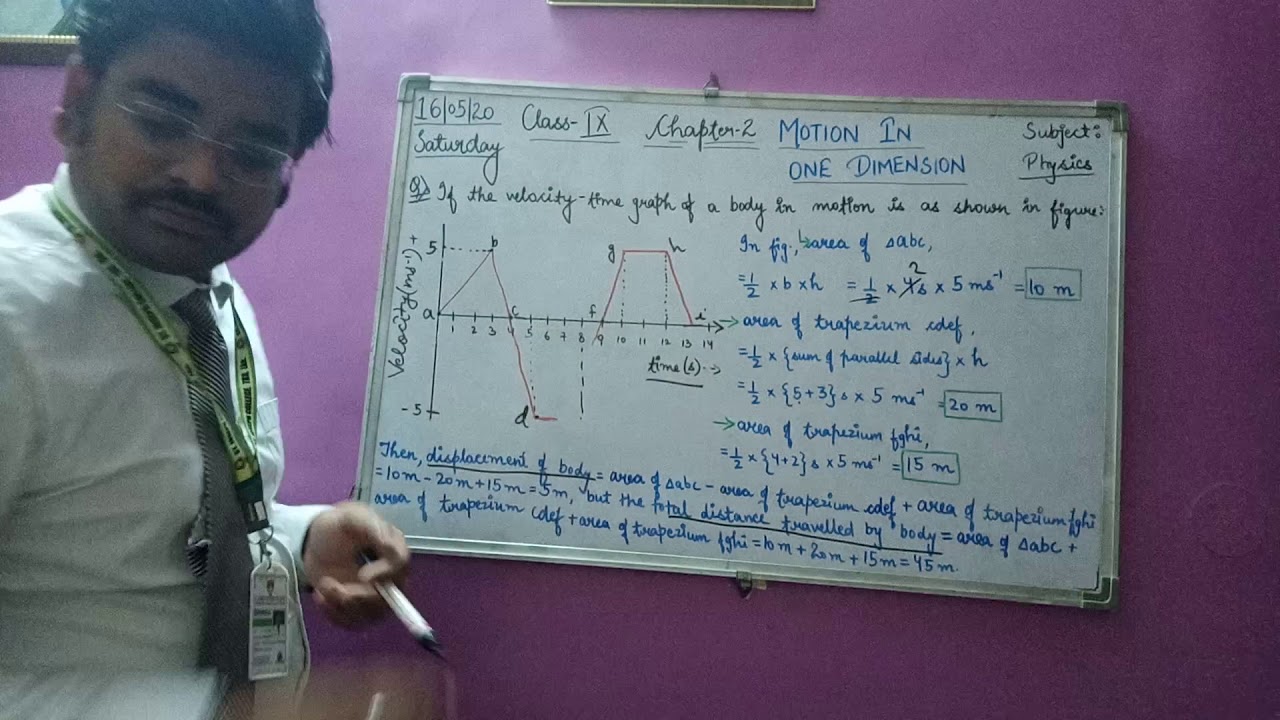 16/05/20 Class-IX Chapter-2 MOTION IN Subject:
Saturday ONE DIMENSION Physics
Q) If the velocity-time graph of a body in motion is as shown in figure:
Velocity (ms⁻¹) +
5
b
a
c
-5
d
f
g
h
i
1 2 3 4 5 6 7 8 9 10 11 12 13 14
time (s) →
In fig., area of △abc,
= 1/2 × b × h = 1/2 × 4s × 5 ms⁻¹ = 10 m
2
→ area of trapezium cdef,
= 1/2 × {sum of parallel sides} × h
= 1/2 × {5+3} s × 5 ms⁻¹ = 20 m
→ area of trapezium fghi,
= 1/2 × {4+2} s × 5 ms⁻¹ = 15 m
Then, displacement of body = area of △abc - area of trapezium cdef + area of trapezium fghi
= 10m - 20m + 15m = 5m, but the total distance travelled by body = area of △abc +
area of trapezium cdef + area of trapezium fghi = 10m + 20m + 15m = 45m.